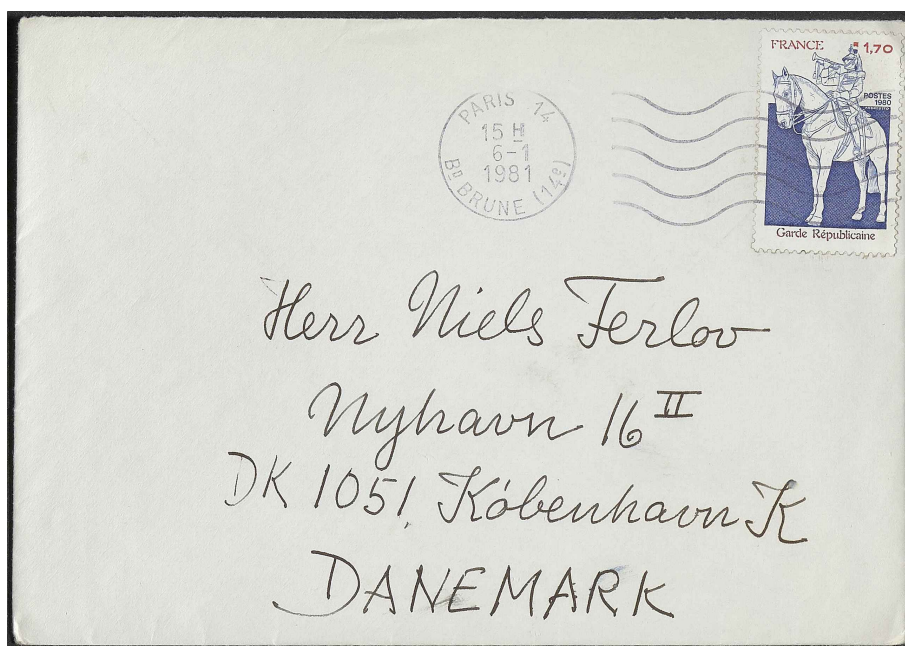 PARIS 14
15 H
6-1
1981
BD BRUNE (14e)
FRANCE 1,70
POSTES
1980
Garde Républicaine
Herr Niels Ferlov
Nyhavn 16 II
DK 1051, Kóbenhavn K
DANEMARK